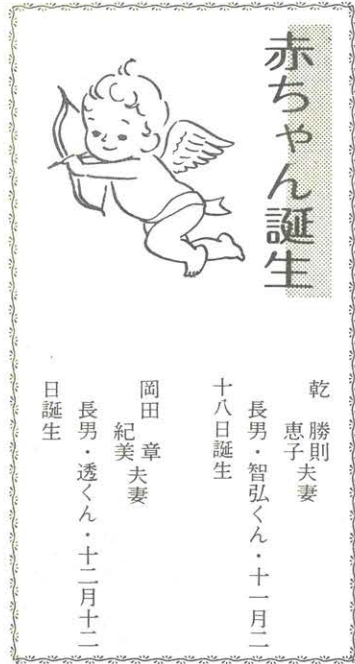 赤ちゃん誕生
乾 勝則
恵子夫妻
長男・智弘くん・十一月二
十八日誕生
岡田 章
紀美夫妻
長男・透くん・十二月十二
日誕生